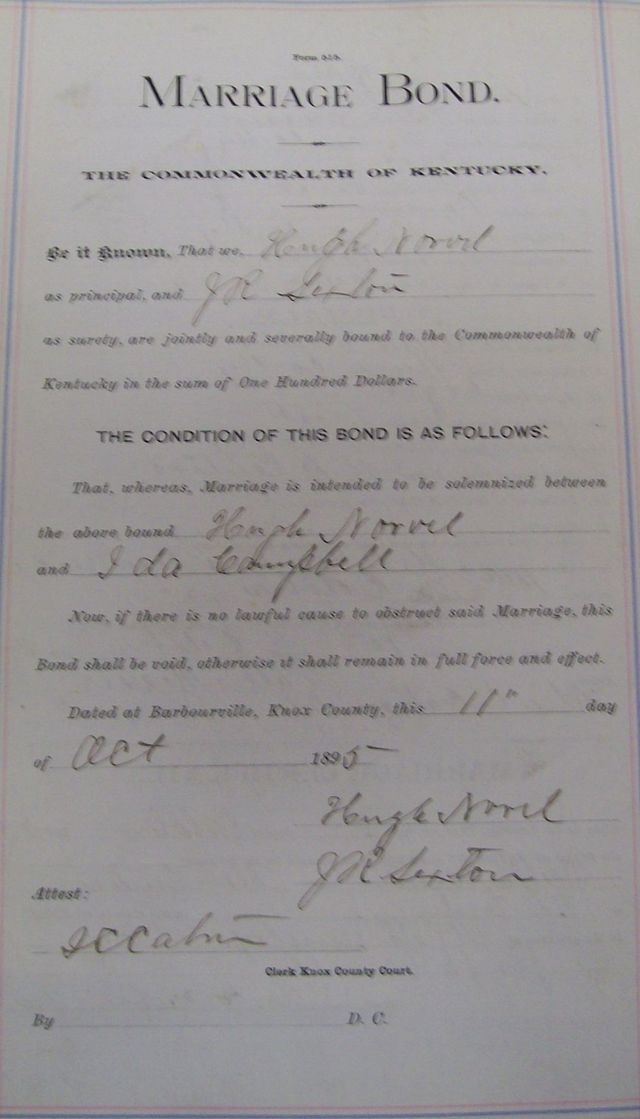 MARRIAGE BOND.
THE COMMONWEALTH OF KENTUCKY.
Be it Known, That we, Hugh Norvel
as principal, and J R Sexton
as surety, are jointly and severally bound to the Commonwealth of
Kentucky in the sum of One Hundred Dollars.
THE CONDITION OF THIS BOND IS AS FOLLOWS:
That, whereas, Marriage is intended to be solemnized between
the above bound Hugh Norvel
and Ida Campbell
Now, if there is no lawful cause to obstruct said Marriage, this
Bond shall be void, otherwise it shall remain in full force and effect.
Dated at Barbourville, Knox County, this 11th day
of Oct 1895
Hugh Norvel
J R Sexton
Attest:
Clerk Knox County Court.
By D. C.